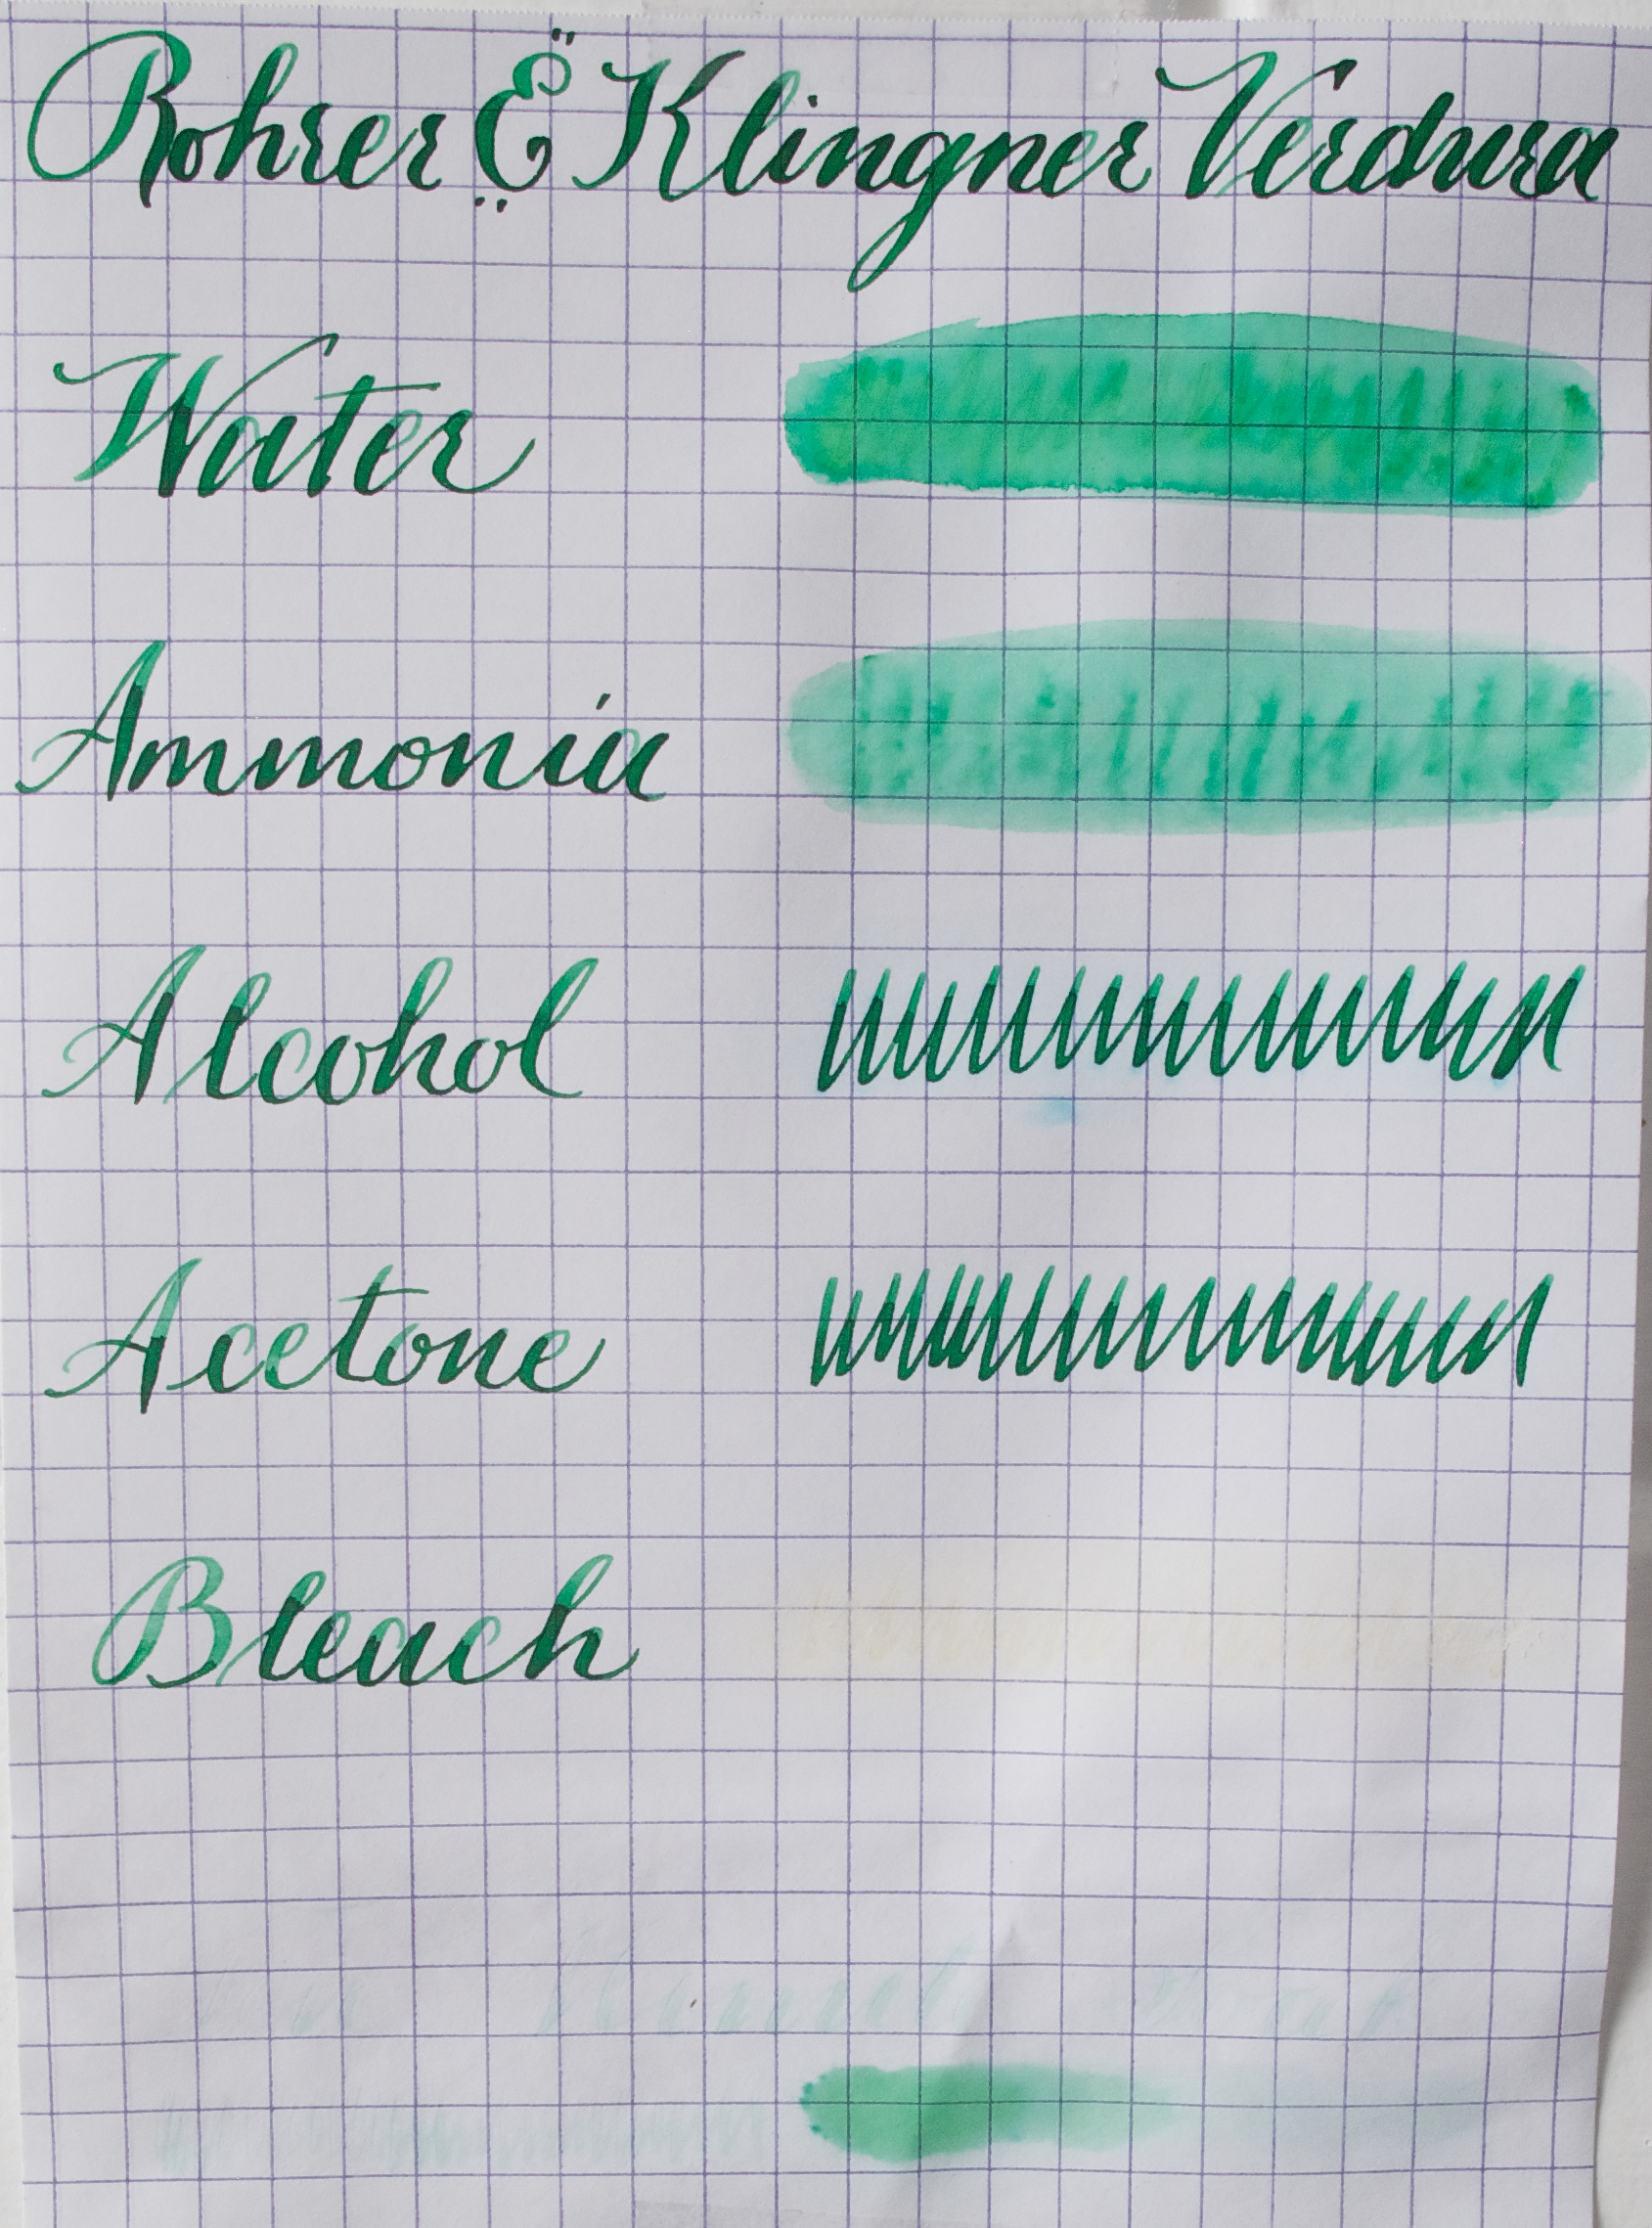 Rohrer & Klingner Verdura
Water
Ammonia
Alcohol
Acetone
Bleach